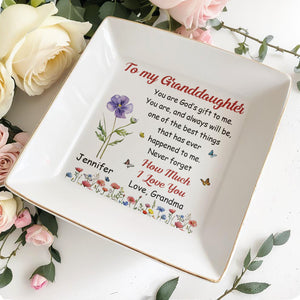 To my Granddaughter,
You are God's gift to me.
You are, and always will be,
one of the best things
that has ever
happened to me.
Never forget
How Much
I Love You
Love, Grandma
Jennifer